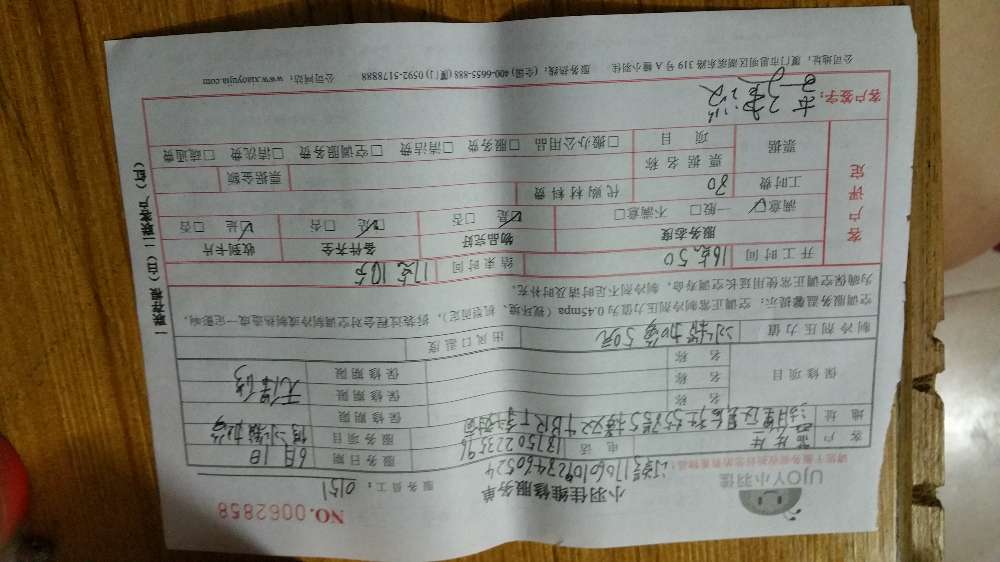 UJOY小羽佳
NO. 0062858
小羽佳维修服务单
服务员工: 0151
请您于服务前收拾好您的贵重物品!
订单号
客户 电话 13750223596 服务日期 6月1日
地址 服务项目
保修项目 名称 保修期限
名称 保修期限 无保修
名称 保修期限
制冷剂压力值 冰箱加氟50元 出风口温度
空调服务温馨提示: 空调正常制冷剂压力值为0.45mpa (视环境、机型而定), 拆装过程会对空调制冷或制热造成一定影响,
为确保空调正常使用延长空调寿命, 制冷剂不足时请及时补充。
开工时间 16点50 结束时间 17点10分
客户评定
服务态度 物品完好 备件齐全 收到卡片
满意☑ 一般□ 不满意□ ☑是 □否 ☑是 □否 ☑是 □否
工时费 代购材料费
票据 票据名称 票据金额
项目 □搬办公用品 □服务费 □清洁费 □空调服务费 □清洗费 □疏通费
客户签字:
公司地址: 厦门市思明区湖滨东路319号A幢小羽佳 服务热线: (全国) 400-6655-888 (厦门) 0592-5178888 公司网站: www.xiaoyujia.com
一联存根 (白) 二联客户 (红)